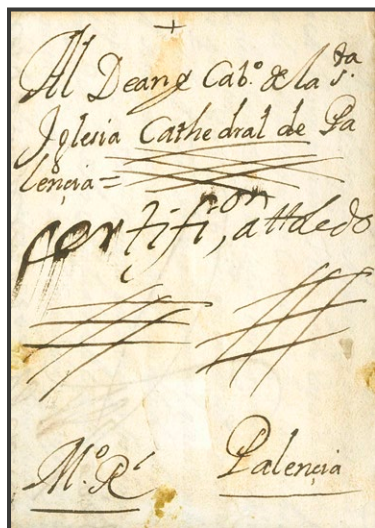 Al Dean y Cab.º de la s.ta
Iglesia Cathedral de Pa
lençia=
çertifi.on
Palençia